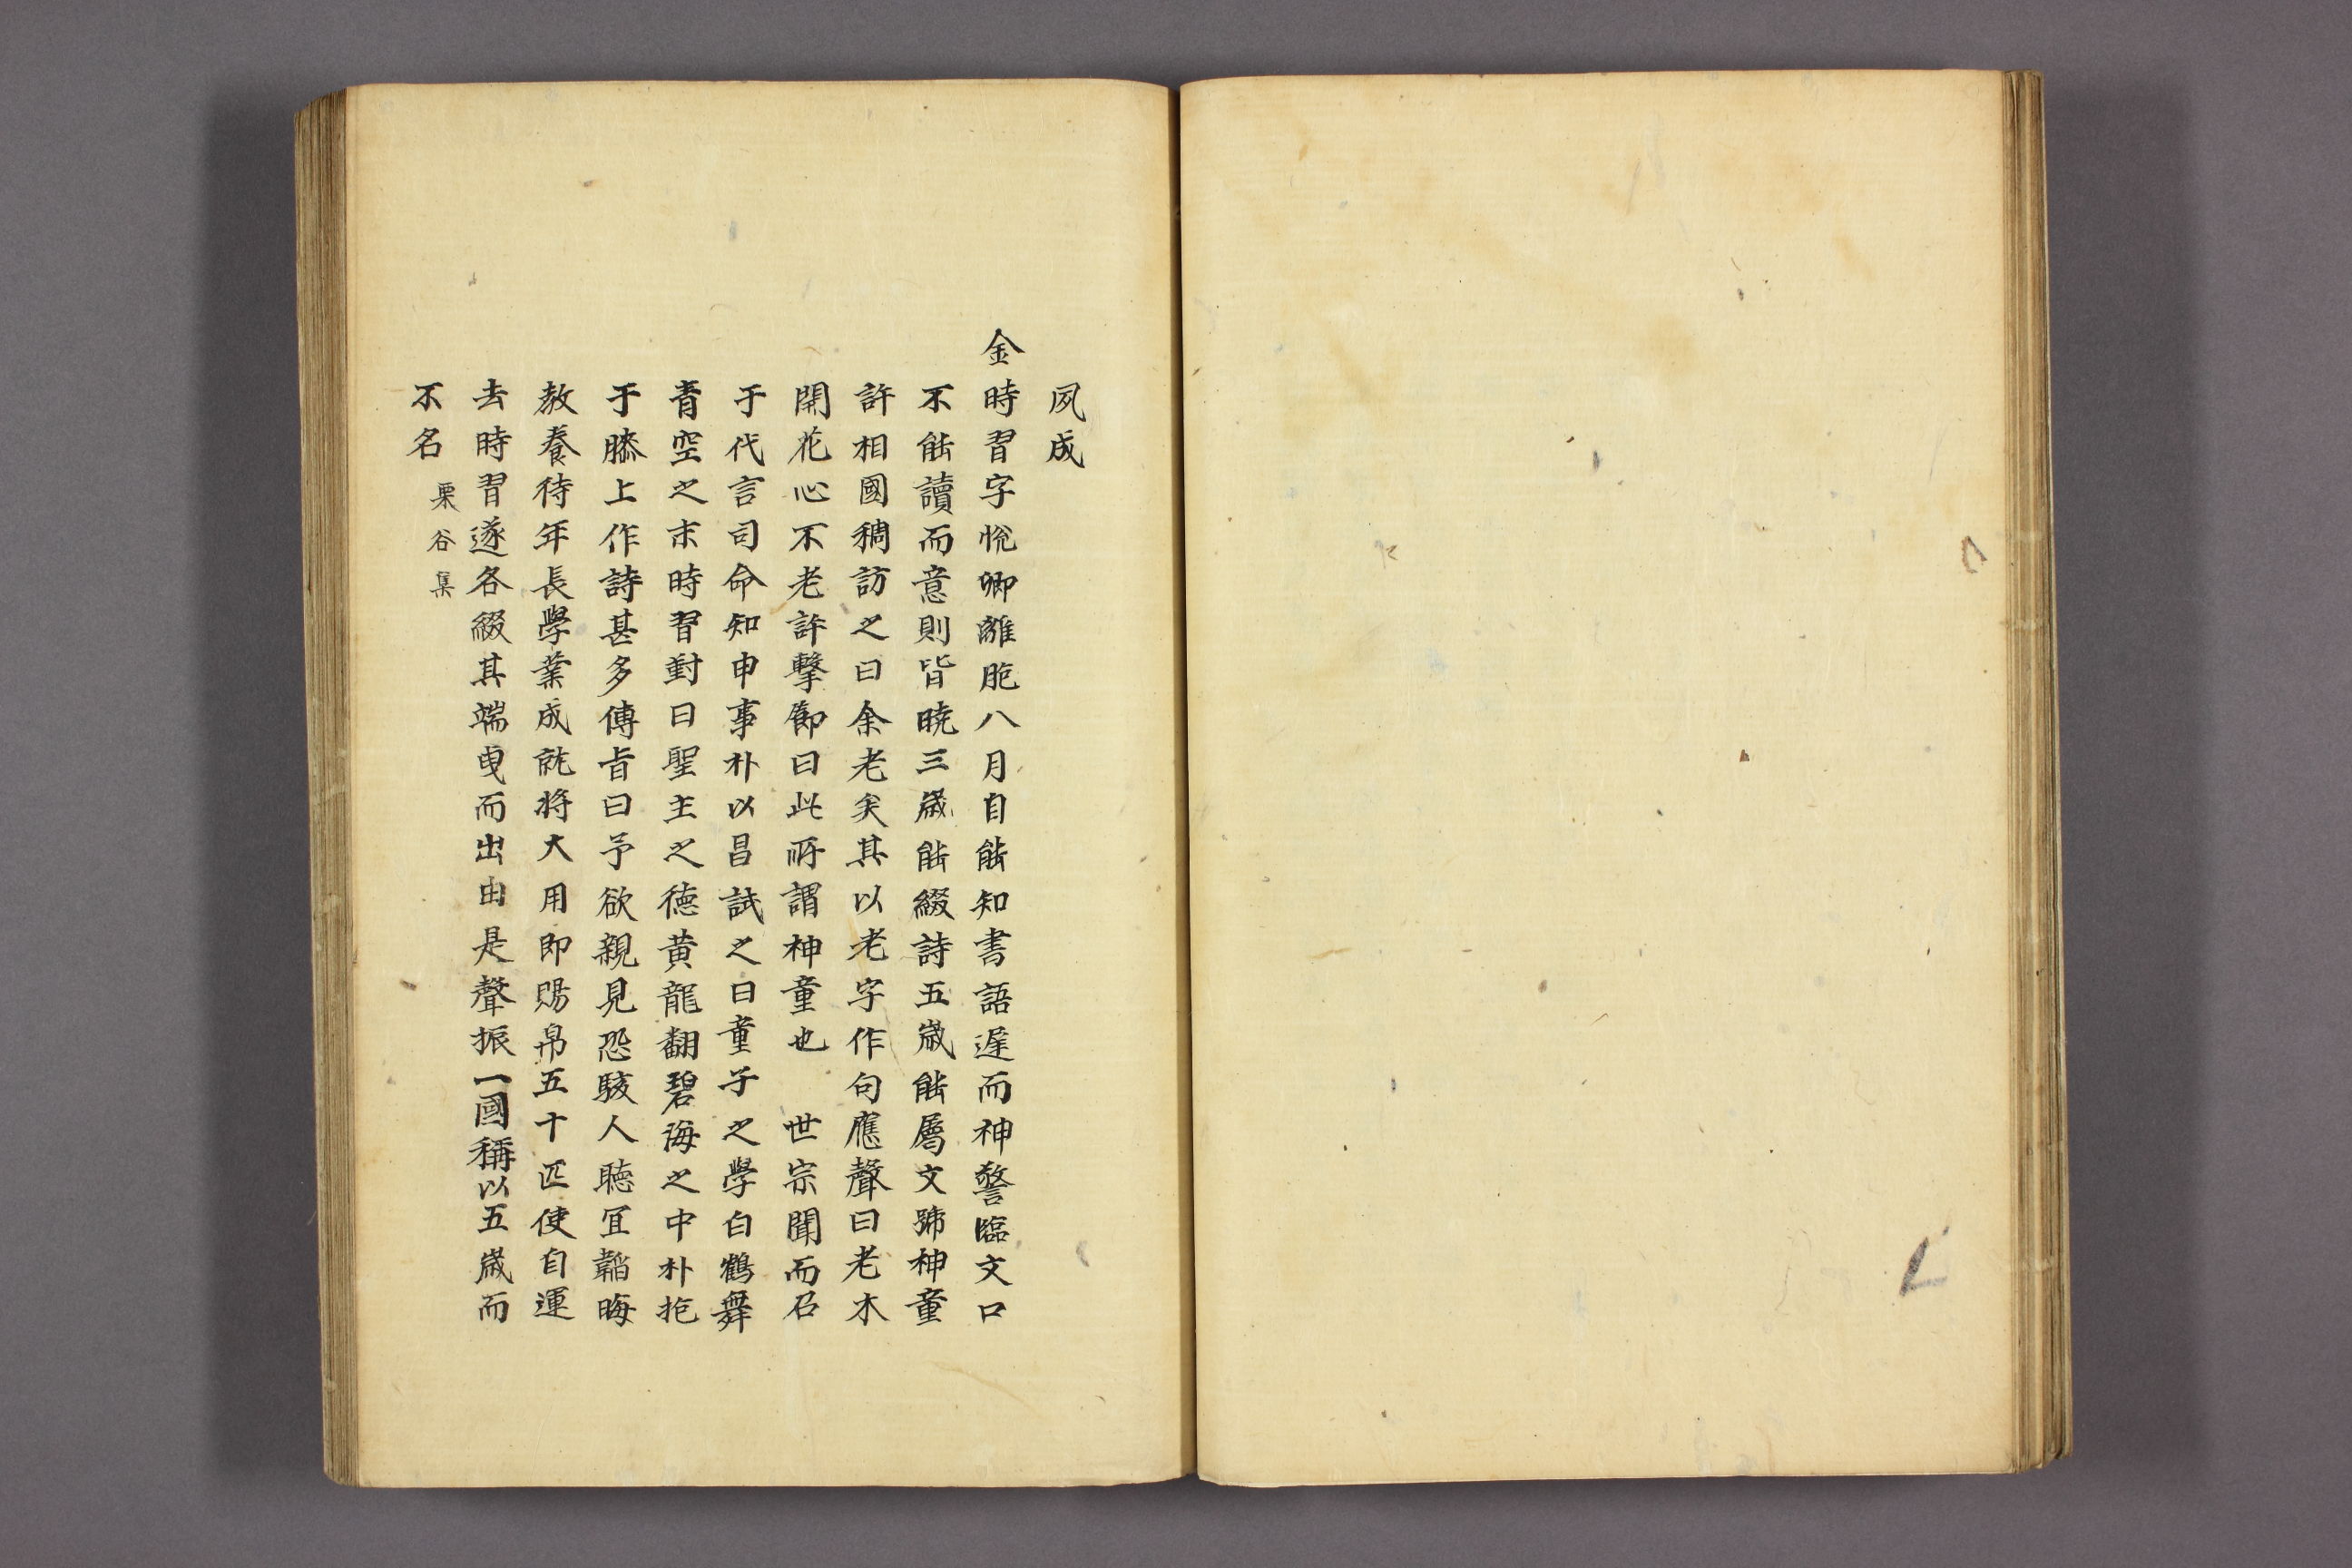 夙成
金時習字悅卿離胞八月自能知書語遲而神警臨文口
不能讀而意則皆曉三歲能綴詩五歲能屬文號神童
許相國稠訪之曰余老矣其以老字作句應聲曰老木
開花心不老許擊節曰此所謂神童也 世宗聞而召
于代言司命知申事朴以昌試之曰童子之學白鶴舞
青空之末時習對曰聖主之德黃龍翻碧海之中朴抱
于膝上作詩甚多傳旨曰予欲親見恐駭人聽宜韜晦
敎養待年長學業成就將大用卽賜帛五十匹使自運
去時習遂各綴其端曳而出由是聲振一國稱以五歲而
不名 栗谷集